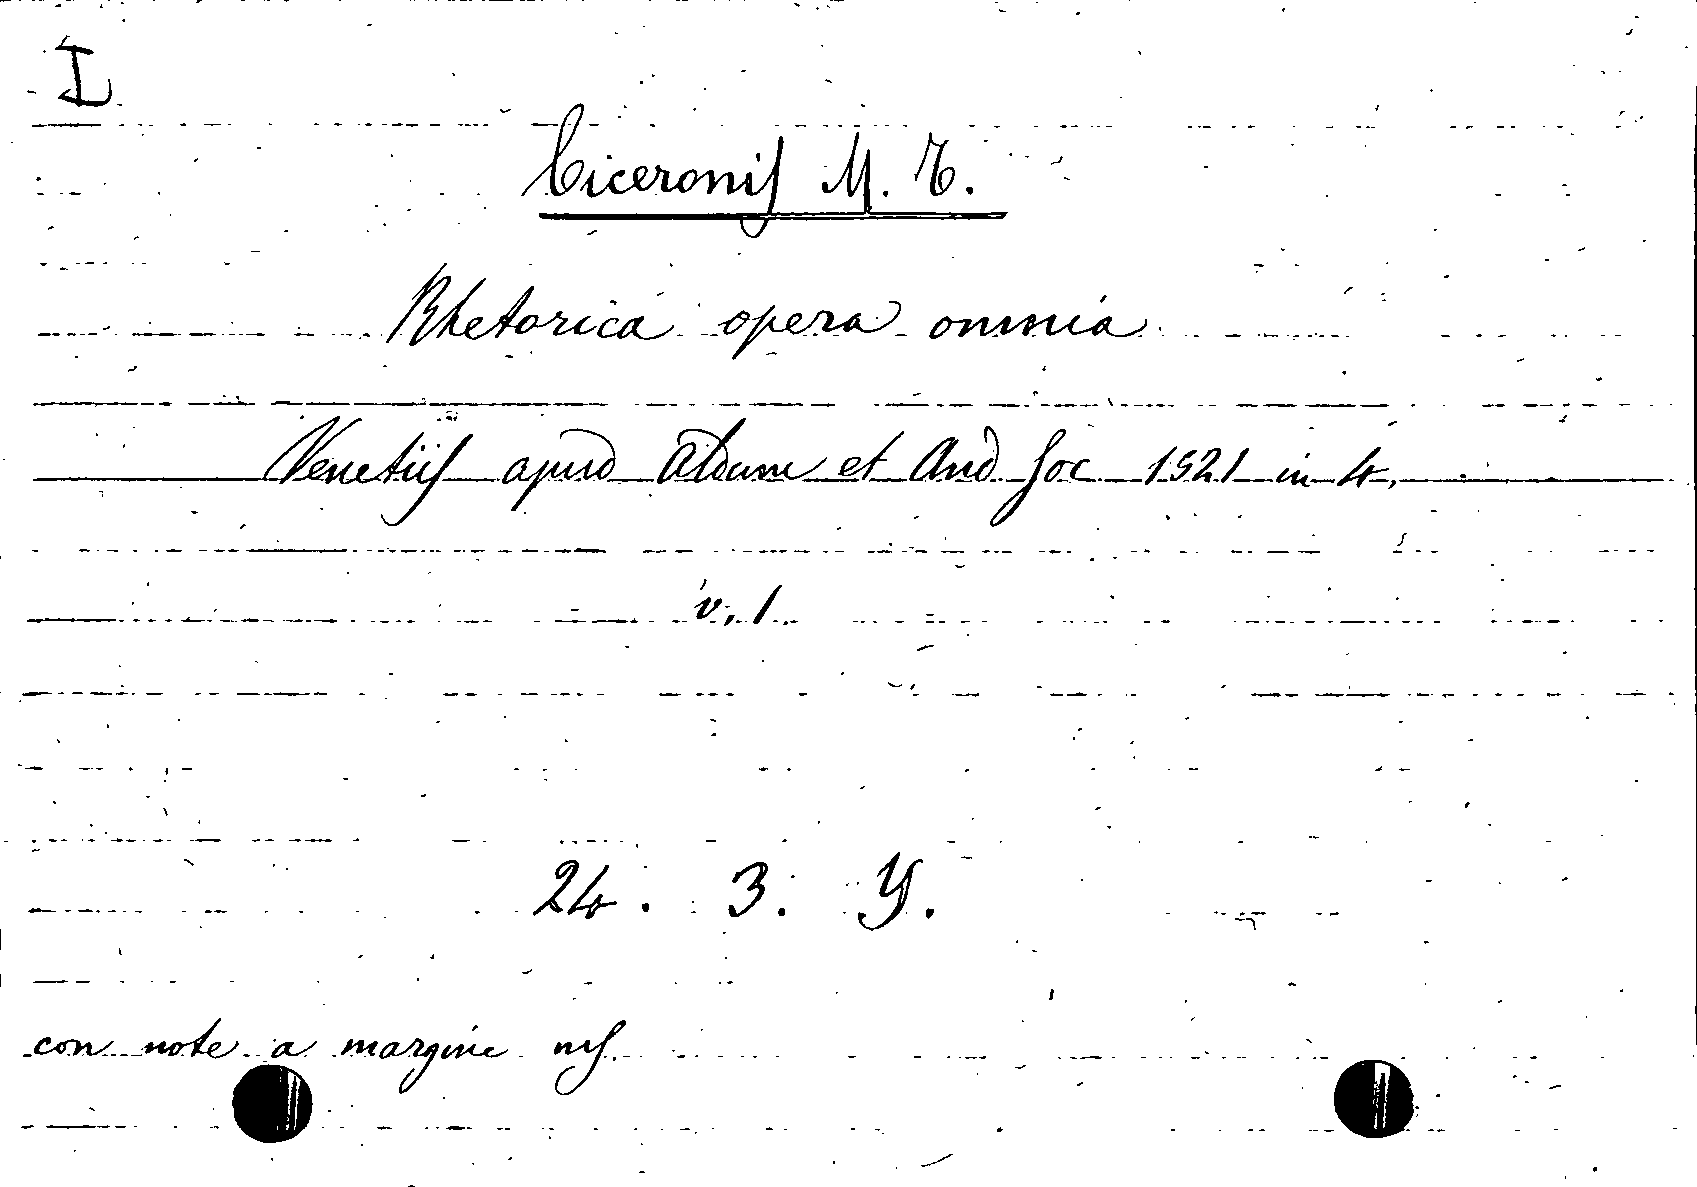 I
Ciceronis M. T.
Rhetorica opera omnia
Venetiis apud Aldum et And Soc 1521 in 4.
v. 1.
24. 3. Y.
con note a margine ms.